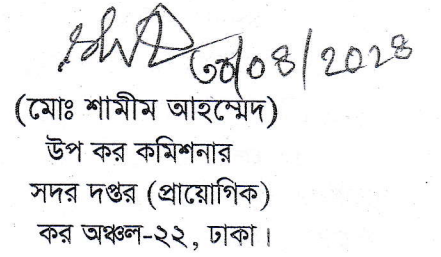 ৩০/০৪/২০২৪
(মোঃ শামীম আহম্মেদ)
উপ কর কমিশনার
সদর দপ্তর (প্রায়োগিক)
কর অঞ্চল-২২, ঢাকা।